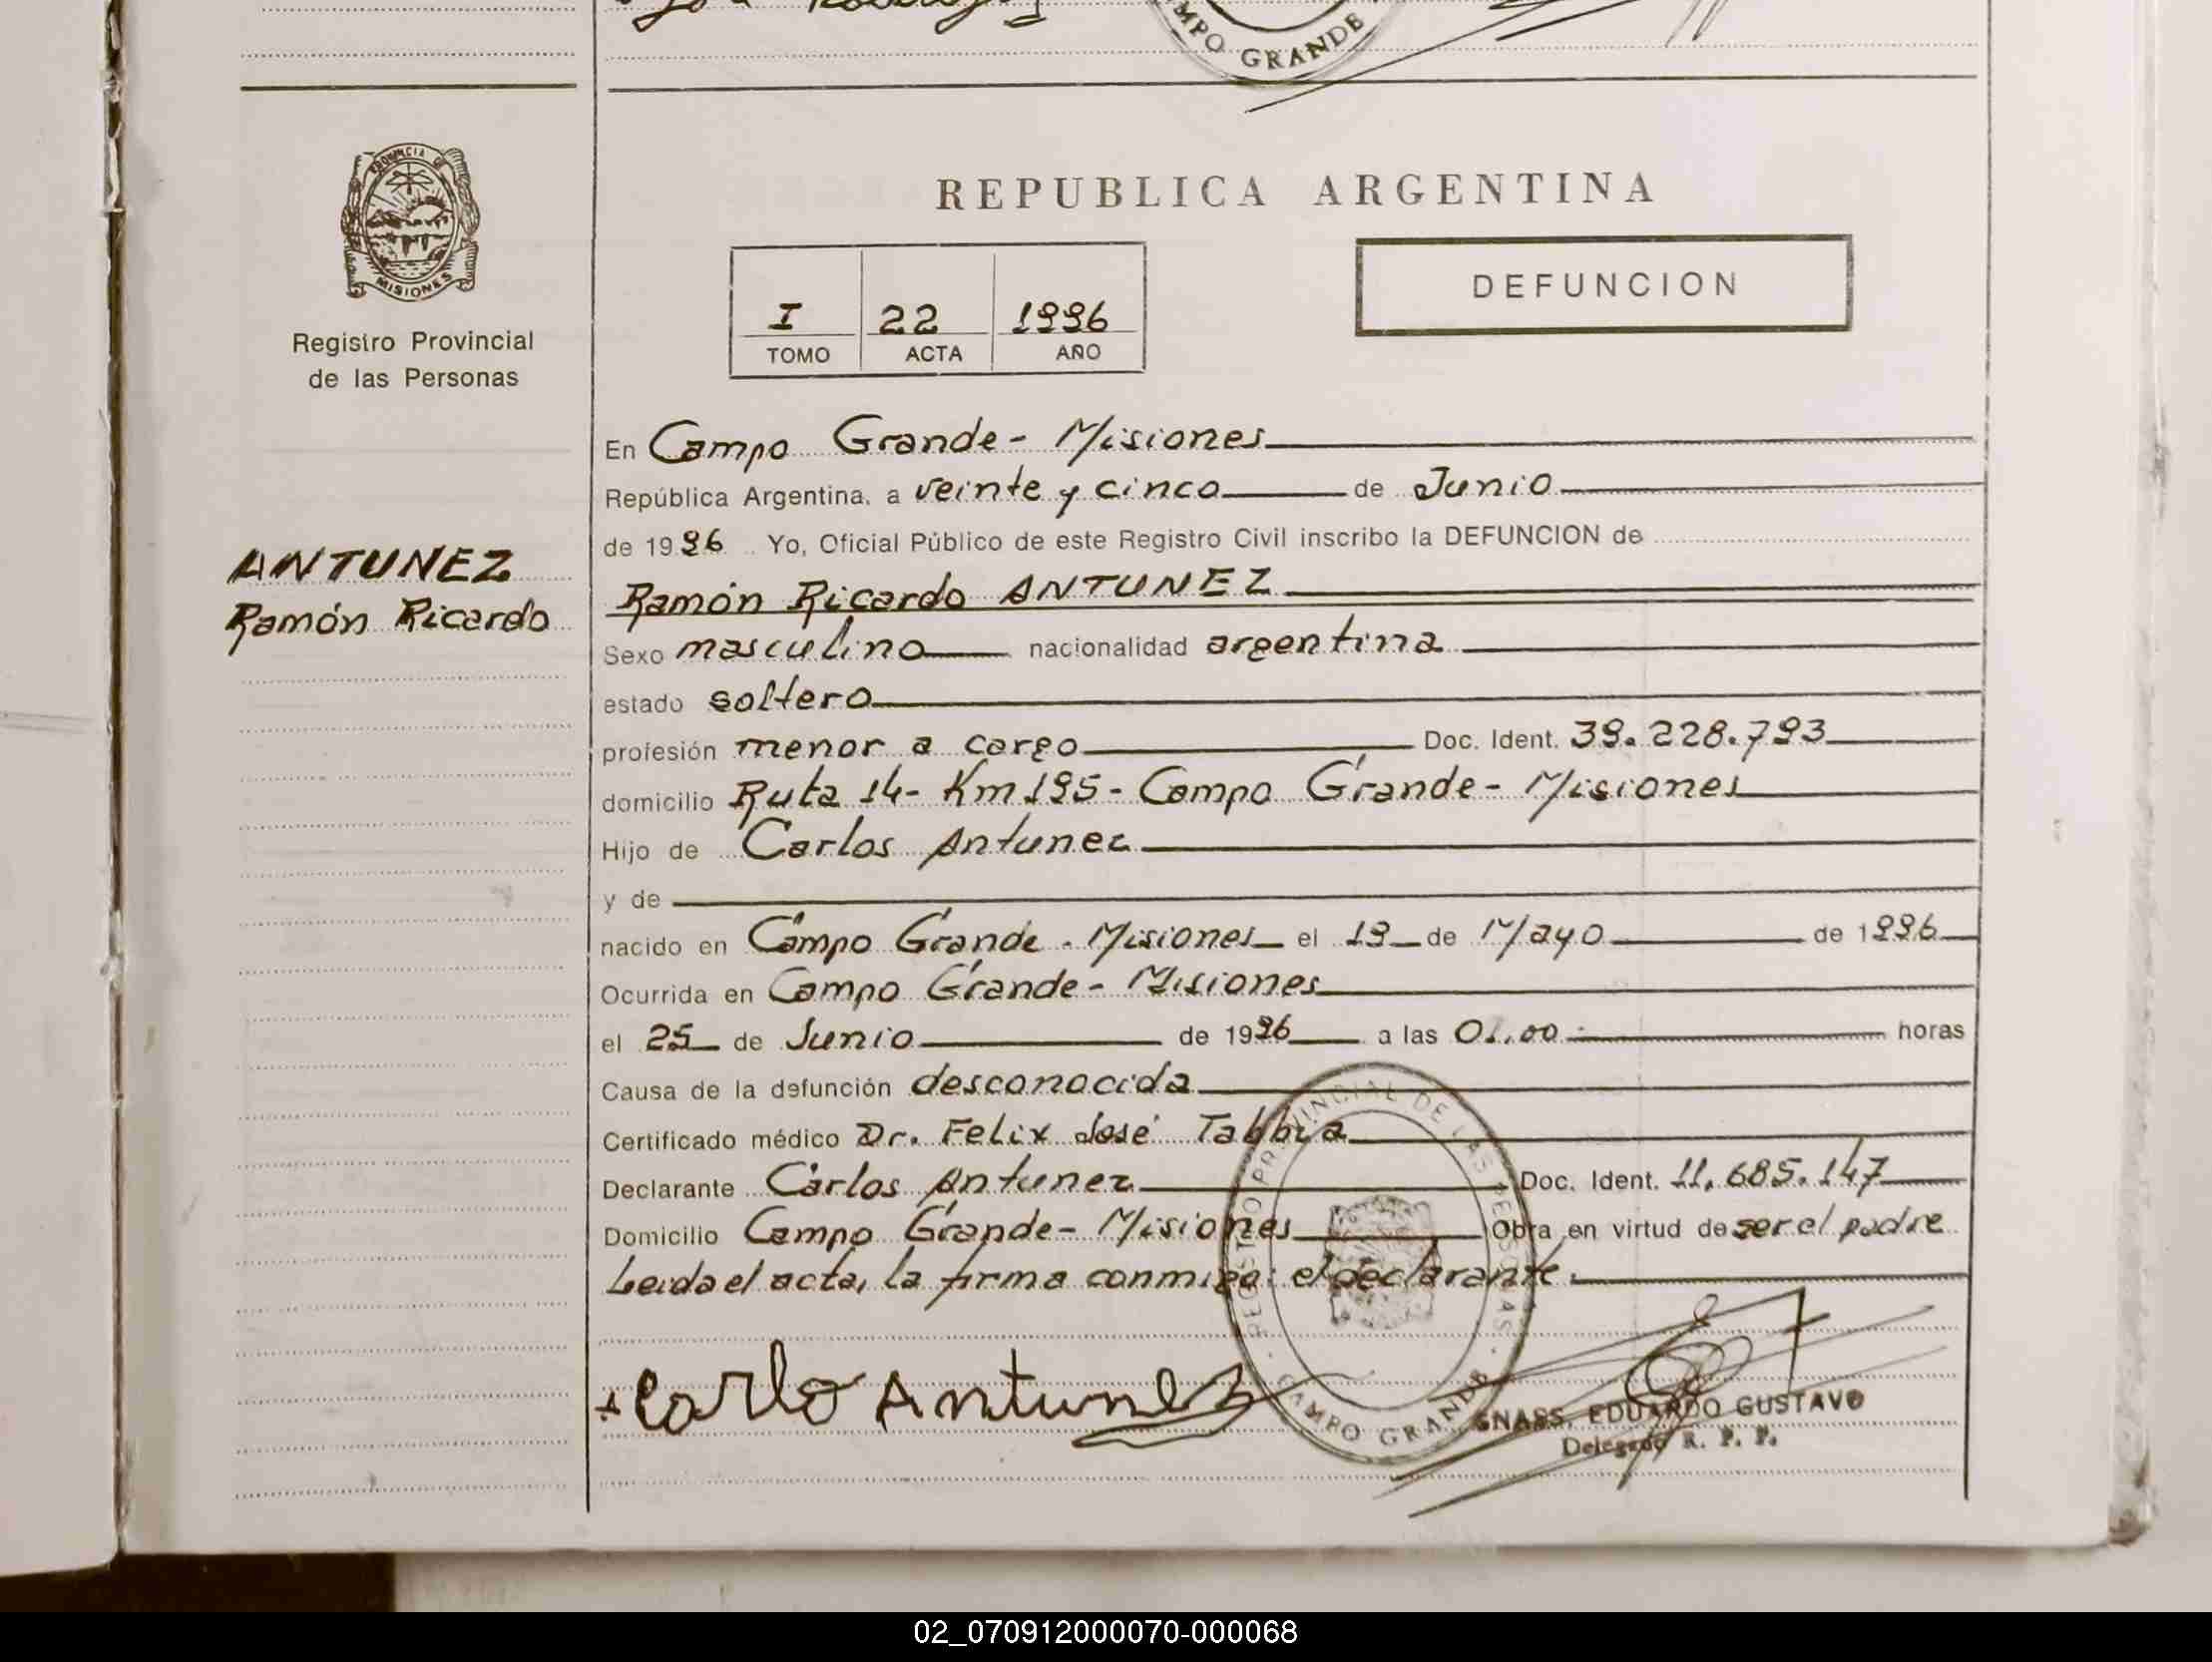 MPO GRANDE
PROVINCIA DE
MISIONES
Registro Provincial
de las Personas
REPUBLICA ARGENTINA
DEFUNCION
I 22 1996
TOMO ACTA AÑO
En Campo Grande - Misiones
República Argentina, a veinte y cinco de Junio
de 1996 Yo, Oficial Público de este Registro Civil inscribo la DEFUNCION de
ANTUNEZ
Ramón Ricardo
Ramón Ricardo ANTUNEZ
Sexo masculino nacionalidad argentina
estado soltero
profesión menor a cargo Doc. Ident. 39.228.793
domicilio Ruta 14- Km 195 - Campo Grande - Misiones
Hijo de Carlos Antunez
y de
nacido en Campo Grande - Misiones el 19 de Mayo de 1996
Ocurrida en Campo Grande - Misiones
el 25 de Junio de 1996 a las 01.00 horas
Causa de la defunción desconocida
Certificado médico Dr. Felix José Tabbia
Declarante Carlos Antunez Doc. Ident. 11.685.147
Domicilio Campo Grande - Misiones Obra en virtud de ser el padre
Leida el acta, la firma conmigo: el declarante.
REGISTRO PROVINCIAL DE LAS PERSONAS
CAMPO GRANDE
Carlo Antunez
GNASS, EDUARDO GUSTAVO
Delegado R. P. P.
02_070912000070-000068